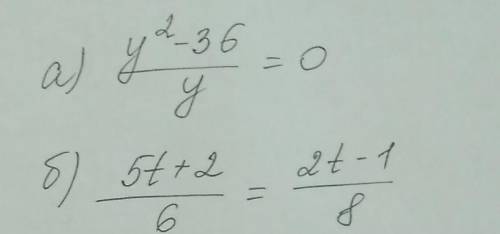 а) (y²-36)/y = 0
б) (5t+2)/6 = (2t-1)/8